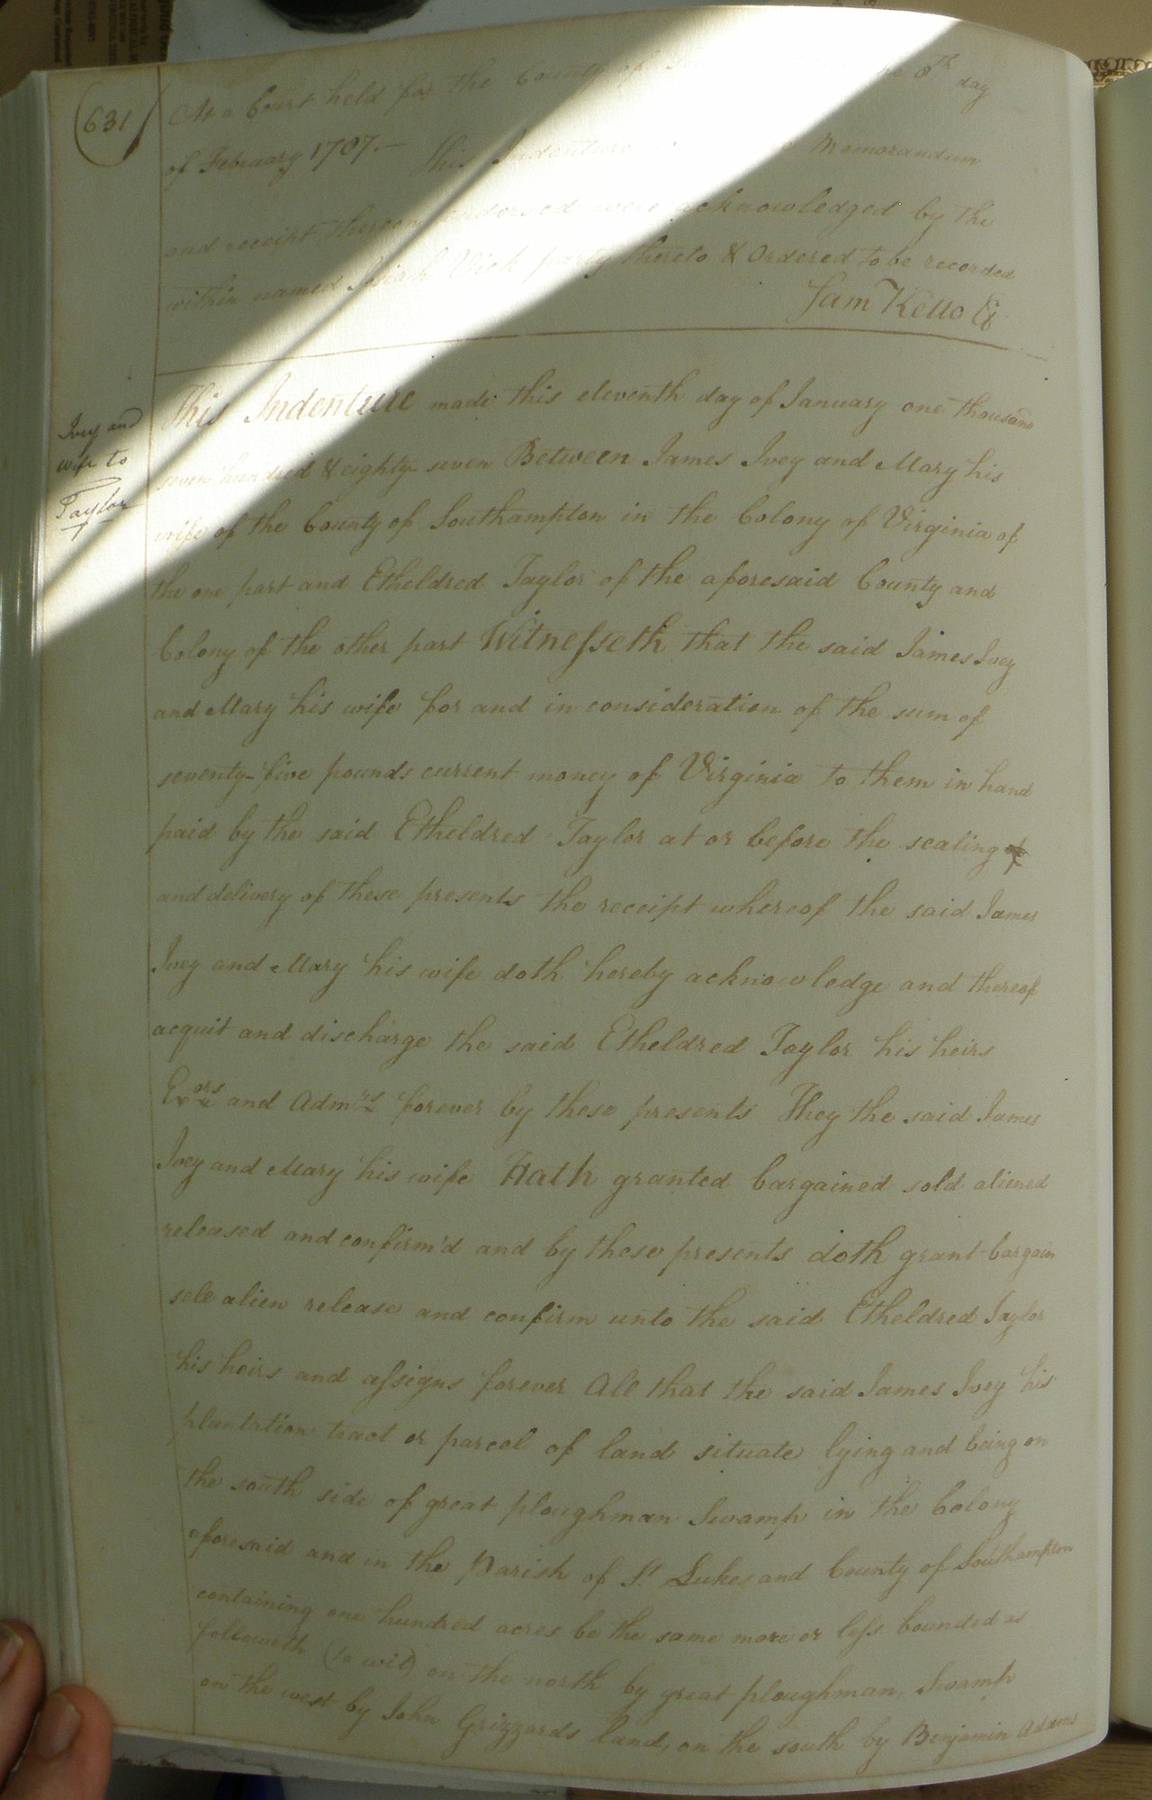 631
At a Court held for the County of 8th day
of February 1787.— This Indenture Memorandum
and receipt thereon endorsed were acknowledged by the
within named Josiah Vick party thereto & Ordered to be recorded
Sam Kello
Ivey and
wife to
Taylor
This Indenture made this eleventh day of January one thousand
seven hundred & eighty seven Between James Ivey and Mary his
wife of the County of Southampton in the Colony of Virginia of
the one part and Etheldred Taylor of the aforesaid County and
Colony of the other part Witnesseth that the said James Ivey
and Mary his wife for and in consideration of the sum of
seventy-five pounds current money of Virginia to them in hand
paid by the said Etheldred Taylor at or before the sealing
and delivery of these presents the receipt whereof the said James
Ivey and Mary his wife doth hereby acknowledge and thereof
acquit and discharge the said Etheldred Taylor his heirs
Exors and Admrs forever by these presents They the said James
Ivey and Mary his wife Hath granted bargained sold aliened
released and confirm'd and by these presents doth grant bargain
sell alien release and confirm unto the said Etheldred Taylor
his heirs and assigns forever All that the said James Ivey his
plantation tract or parcel of land situate lying and being on
the south side of great ploughman Swamp in the Colony
aforesaid and in the Parish of St Lukes and County of Southampton
containing one hundred acres be the same more or less bounded as
followeth (to wit) on the north by great ploughman, Swamp
on the west by John Grizzards land, on the south by Benjamin Adams